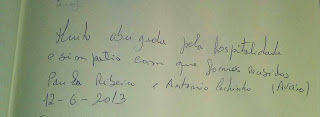 Muito obrigada pela hospitalidade
e simpatia com que fomos recebidos
Paula Ribeiro e Antonio (Aveiro)
12-6-2013